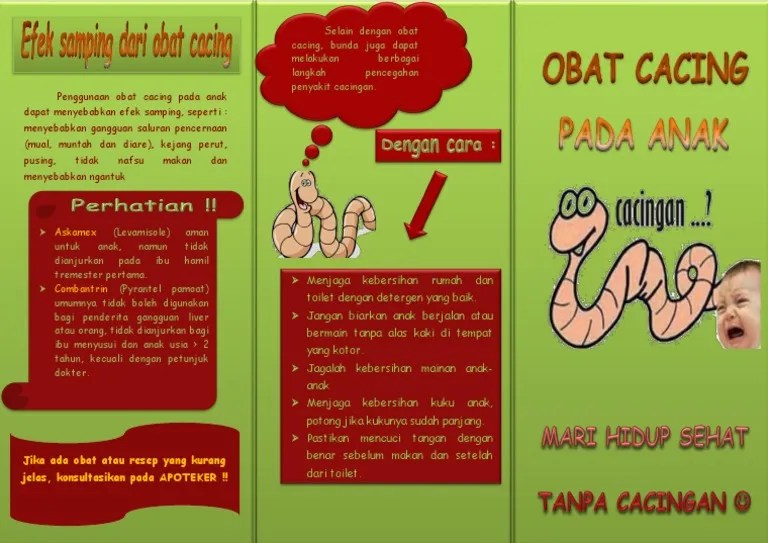 Efek samping dari obat cacing
Penggunaan obat cacing pada anak
dapat menyebabkan efek samping, seperti :
menyebabkan gangguan saluran pencernaan
(mual, muntah dan diare), kejang perut,
pusing, tidak nafsu makan dan
menyebabkan ngantuk
Perhatian !!
➤ Askamex (Levamisole) aman
untuk anak, namun tidak
dianjurkan pada ibu hamil
tremester pertama.
➤ Combantrin (Pyrantel pamoat)
umumnya tidak boleh digunakan
bagi penderita gangguan liver
atau orang, tidak dianjurkan bagi
ibu menyusui dan anak usia > 2
tahun, kecuali dengan petunjuk
dokter.
Jika ada obat atau resep yang kurang
jelas, konsultasikan pada APOTEKER !!
Selain dengan obat
cacing, bunda juga dapat
melakukan berbagai
langkah pencegahan
penyakit cacingan.
Dengan cara :
➤ Menjaga kebersihan rumah dan
toilet dengan detergen yang baik.
➤ Jangan biarkan anak berjalan atau
bermain tanpa alas kaki di tempat
yang kotor.
➤ Jagalah kebersihan mainan anak-
anak
➤ Menjaga kebersihan kuku anak,
potong jika kukunya sudah panjang.
➤ Pastikan mencuci tangan dengan
benar sebelum makan dan setelah
dari toilet.
OBAT CACING
PADA ANAK
cacingan ...?
MARI HIDUP SEHAT
TANPA CACINGAN ☺